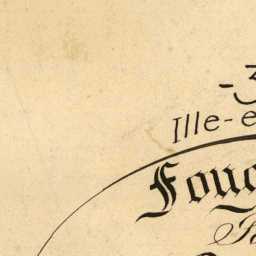 -3
Ille-e
Foug